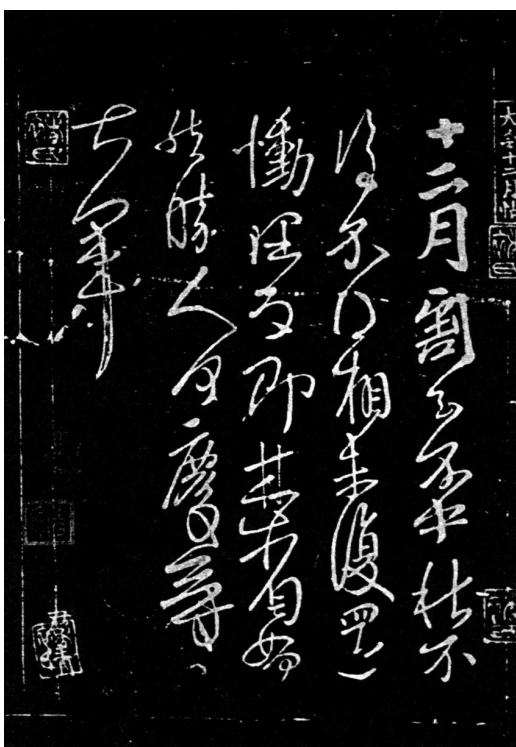 大令十二月帖
十二月割至不中秋不
復不得相未復還
慟理為即甚省如
然勝人何慶等
大軍